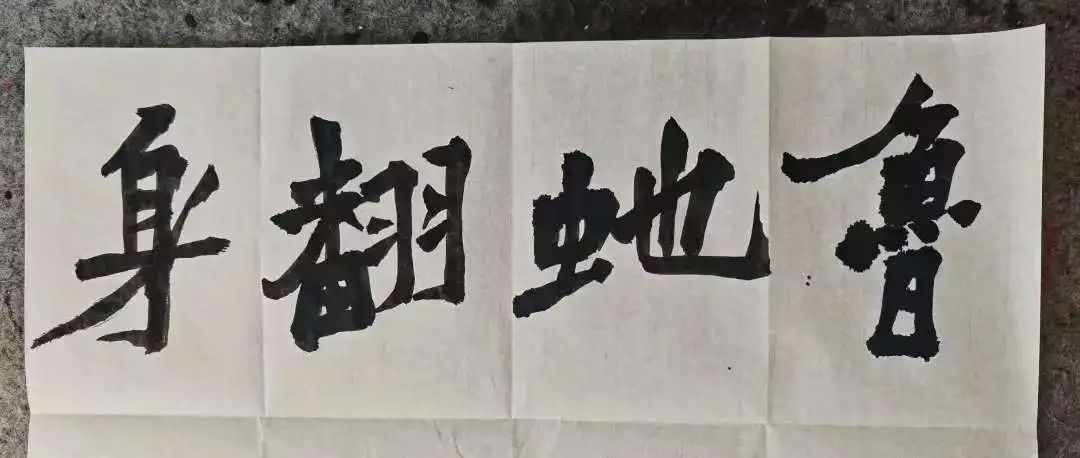 魯虵翻身